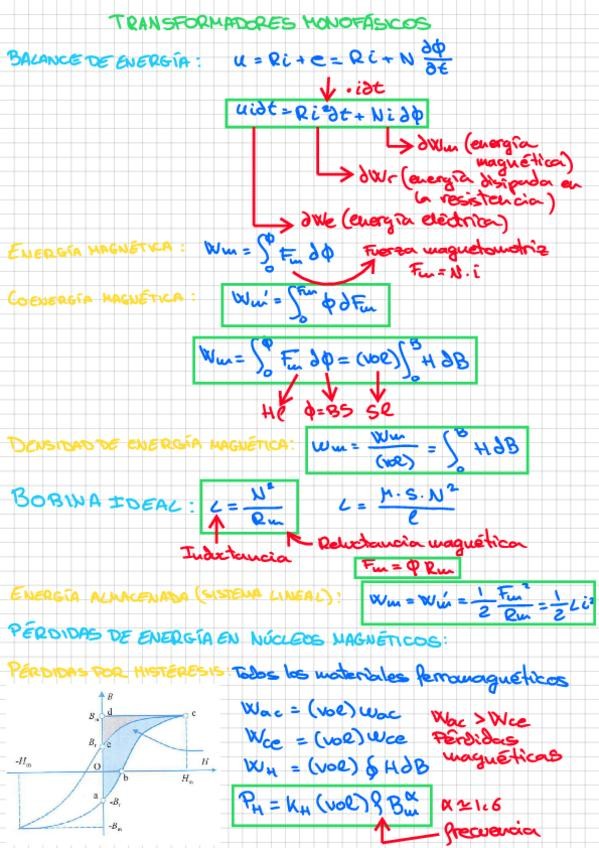 TRANSFORMADORES MONOFÁSICOS
BALANCE DE ENERGÍA: u = Ri + e = Ri + N ∂ϕ/∂t
· i∂t
ui∂t = Ri²∂t + Ni∂ϕ
∂Wm (energía magnética)
∂Wr (energía disipada en la resistencia)
∂We (energía eléctrica)
ENERGÍA MAGNÉTICA: Wm = ∫₀^ϕ Fm ∂ϕ
Fuerza magnetomotriz
Fm = N·i
COENERGÍA MAGNÉTICA: Wm' = ∫₀^Fm ϕ ∂Fm
Wm = ∫₀^ϕ Fm ∂ϕ = (vol) ∫₀^B H ∂B
Hl ϕ=BS Sl
DENSIDAD DE ENERGÍA MAGNÉTICA: wm = Wm/(vol) = ∫₀^B H∂B
BOBINA IDEAL: L = N²/Rm L = μ·S·N²/l
Inductancia
Reluctancia magnética
Fm = ϕ Rm
ENERGÍA ALMACENADA (SISTEMA LINEAL): Wm = Wm' = 1/2 Fm²/Rm = 1/2 Li²
PÉRDIDAS DE ENERGÍA EN NÚCLEOS MAGNÉTICOS:
PÉRDIDAS POR HISTÉRESIS: Todos los materiales ferromagnéticos
B
Bm d c
Br e
-Hm O b Hm H
a -Br
-Bm
Wac = (vol) wac
Wce = (vol) wce
WH = (vol) ∮ H∂B
Wac > Wce
Pérdidas magnéticas
PH = KH (vol) f Bm^α
α ≃ 1.6
frecuencia